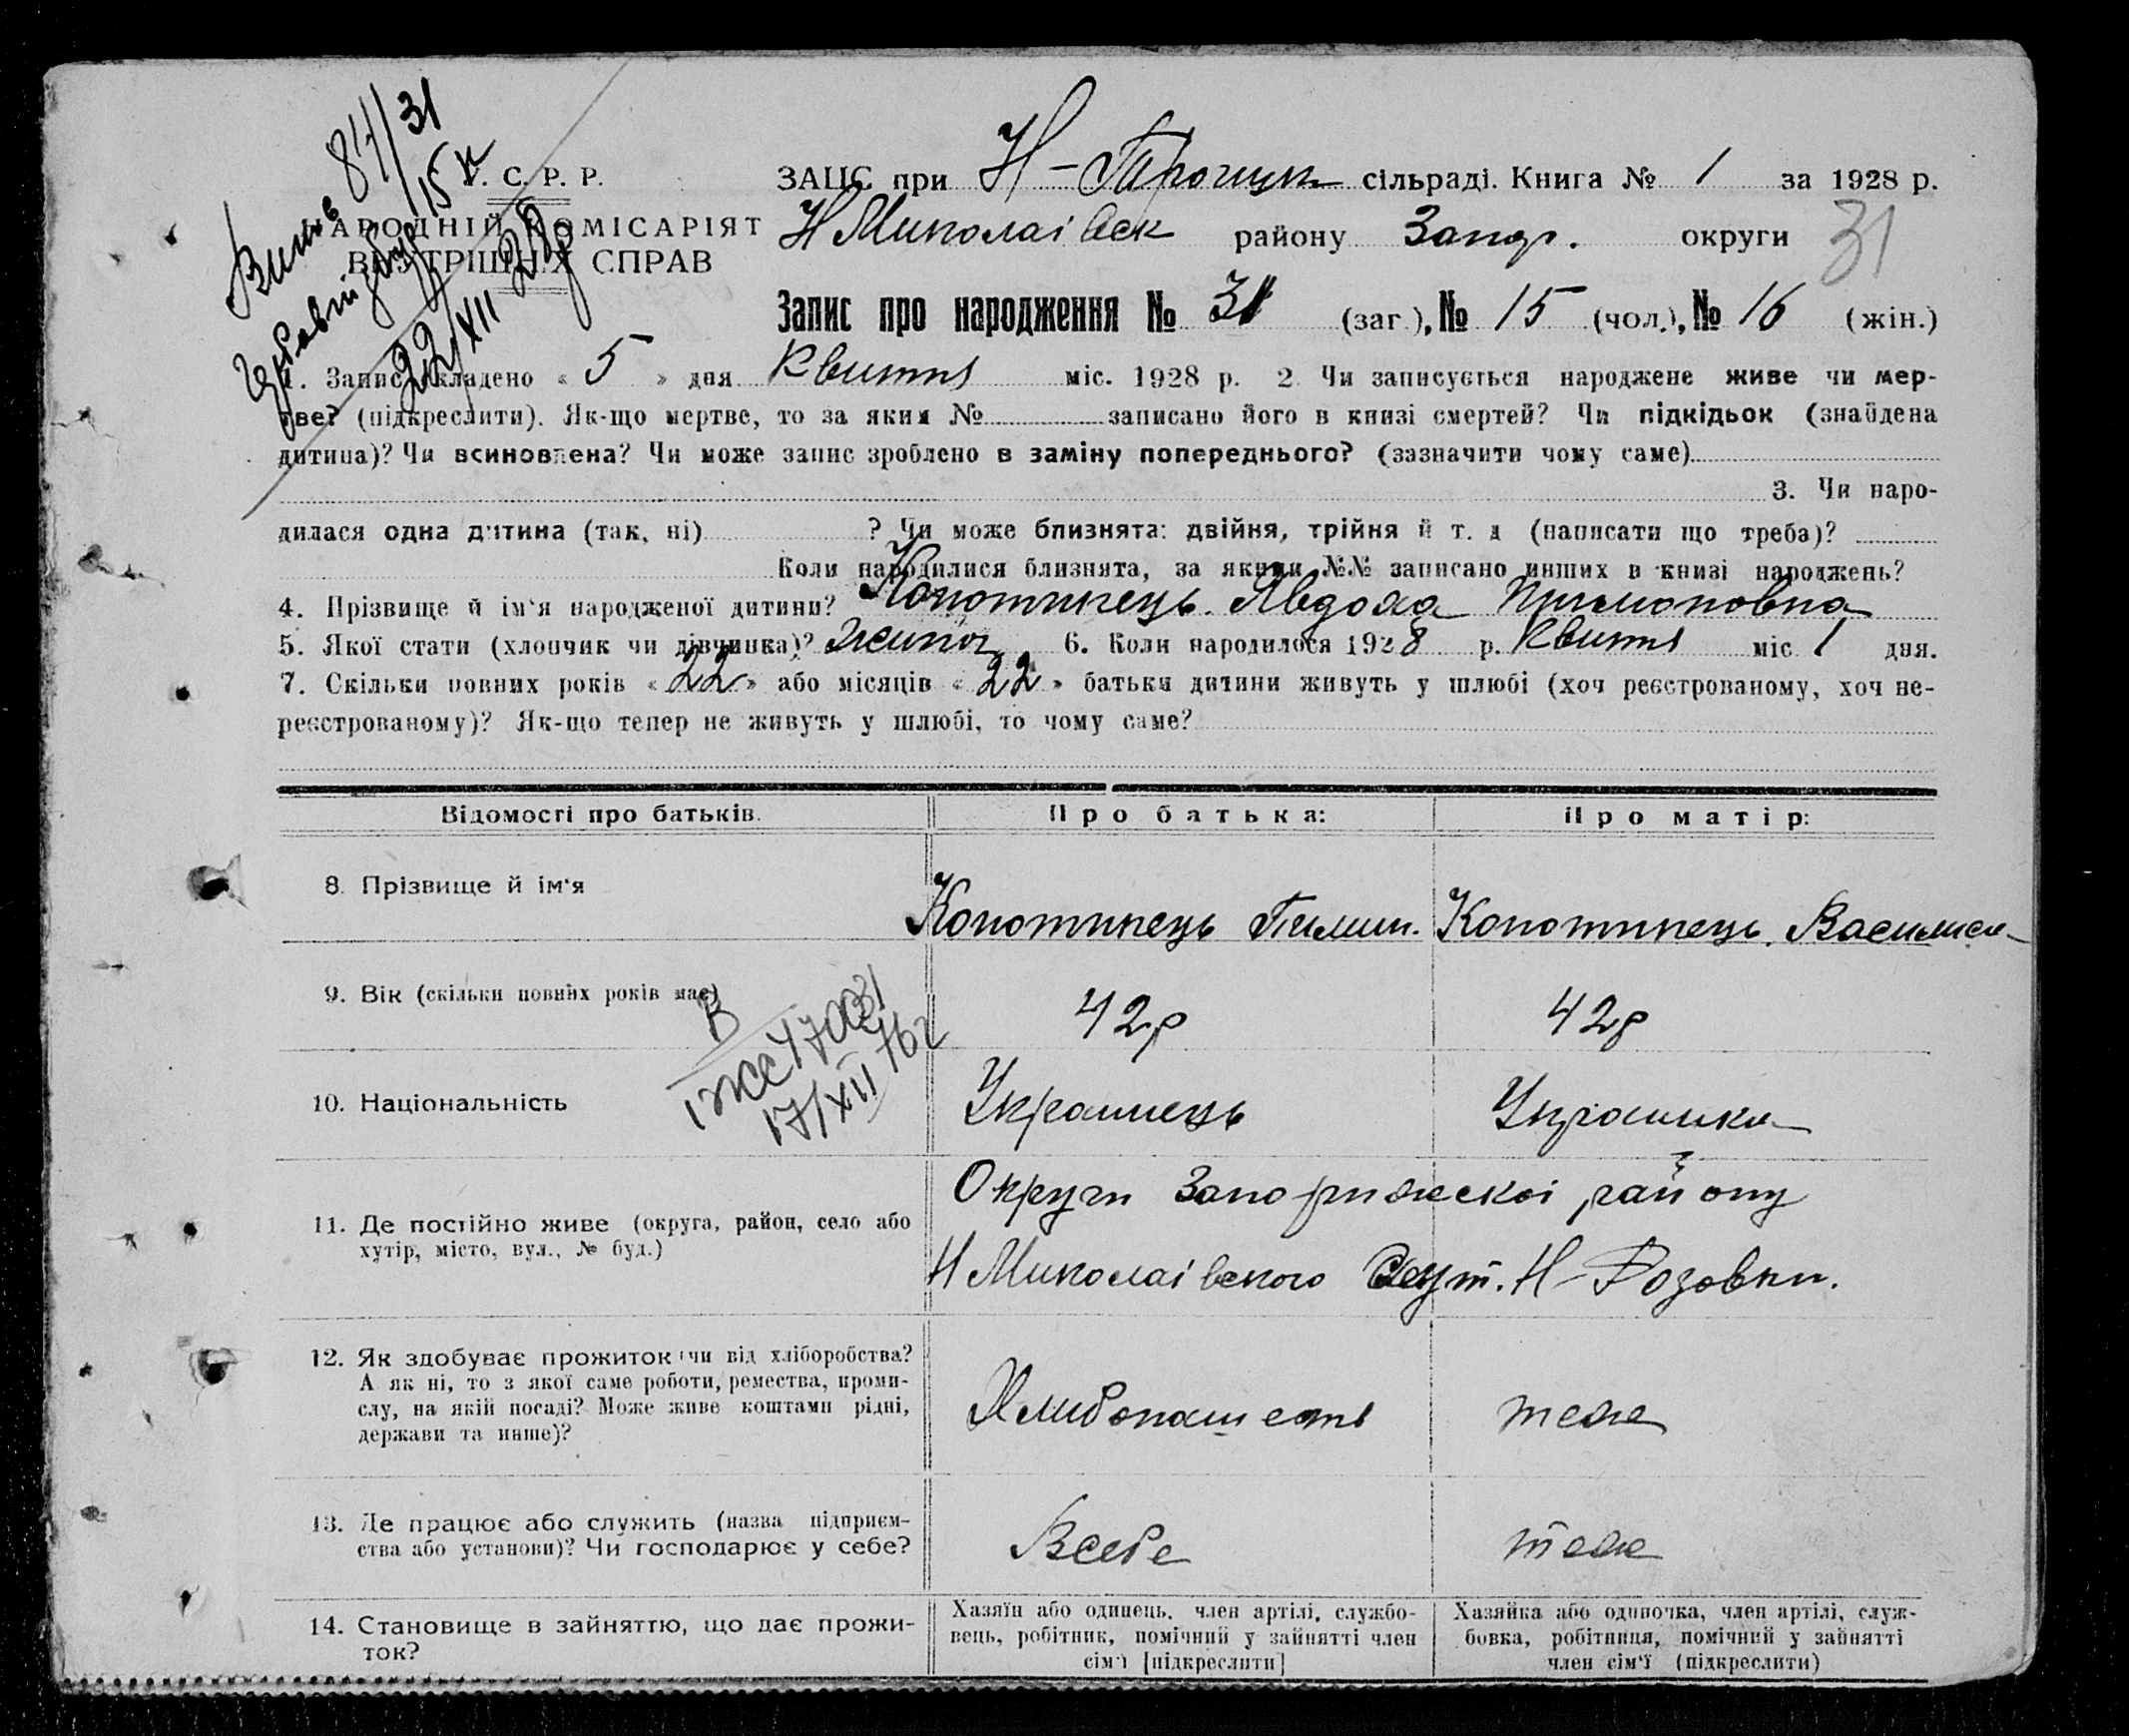 У. С. Р. Р.
НАРОДНІЙ КОМІСАРІЯТ
ВНУТРІШНІХ СПРАВ
84/31
22/XII
ЗАЦС при Н-Троицк сільраді. Книга № 1 за 1928 р.
Н Миколаівск району Запор. округи
31
Запис про народження № 31 (заг.), № 15 (чол.), № 16 (жін.)
1. Запис складено « 5 » дня Квитня міс. 1928 р. 2. Чи записується народжене живе чи мер-
тве? (підкреслити). Як-що мертве, то за яким № записано його в книзі смертей? Чи підкідьок (знайдена
дитина)? Чи всиновлена? Чи може запис зроблено в заміну попереднього? (зазначити чому саме)
3. Чи наро-
дилася одна дитина (так, ні) ? Чи може близнята: двійня, трійня й т. д (написати що треба)?
Коли народилися близнята, за якими №№ записано инших в книзі народжень?
4. Прізвище й ім'я народженої дитини? Конотипець Явдоха Пимоновна
5. Якої стати (хлопчик чи дівчинка)? жиноч 6. Коли народилося 1928 р. Квитня міс 1 дня.
7. Скільки повних років « 22 » або місяців « 22 » батьки дитини живуть у шлюбі (хоч реєстрованому, хоч не-
реєстрованому)? Як-що тепер не живуть у шлюбі, то чому саме?
Відомості про батьків. Про батька: Про матір:
8. Прізвище й ім'я Конотипець Пимин. Конотипець Василиса
9. Вік (скільки повних років має) 42р 42р
17/XII
10. Національність Украинець Украинка
11. Де постійно живе (округа, район, село або
хутір, місто, вул., № буд.)
Округи Запорижскоі району
Н Миколаівского Хут. Н-Розовки.
12. Як здобуває прожиток (чи від хліборобства?
А як ні, то з якої саме роботи, ремества, проми-
слу, на якій посаді? Може живе коштами рідні,
держави та инше)?
Хлибопашесть теже
13. Де працює або служить (назва підприєм-
ства або установи)? Чи господарює у себе?
Всебе теже
14. Становище в зайняттю, що дає прожи-
ток?
Хазяїн або одинець, член артілі, службо-
вець, робітник, помічний у зайнятті член
сім'ї [підкреслити]
Хазяйка або одиночка, член артілі, служ-
бовка, робітниця, помічний у зайнятті
член сім'ї (підкреслити)